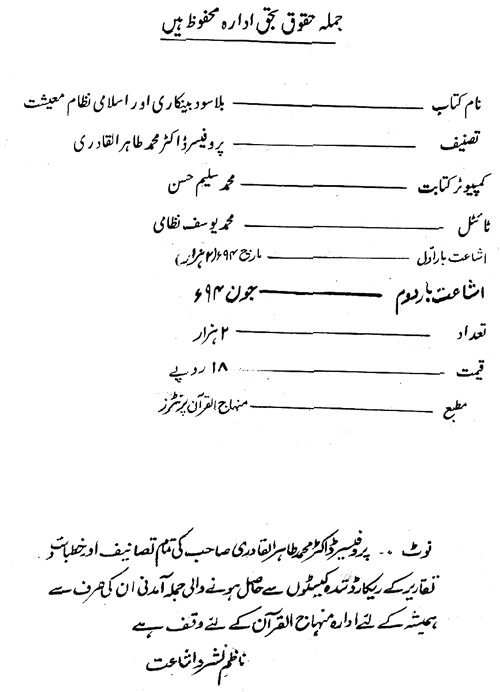 جملہ حقوق بحق ادارہ محفوظ ہیں
نام کتاب ــــــ بلاسود بینکاری اور اسلامی نظام معیشت
تصنیف ــــــ پروفیسر ڈاکٹر محمد طاہر القادری
کمپیوٹر کتابت ــــــ محمد سلیم حسن
ٹائٹل ــــــ محمد یوسف نظامی
اشاعت بار اول ــــــ مارچ ۹۴ء (۲ ہزار)
اشاعت بار دوم ــــــ جون ۹۴ء
تعداد ــــــ ۲ ہزار
قیمت ــــــ ۱۸ روپے
مطبع ــــــ منہاج القرآن پرنٹرز
نوٹ .. پروفیسر ڈاکٹر محمد طاہر القادری صاحب کی تمام تصانیف اور خطبات و
تقاریر کے ریکارڈ شدہ کیسٹوں سے حاصل ہونے والی جملہ آمدنی ان کی طرف سے
ہمیشہ کے لئے ادارہ منہاج القرآن کے لئے وقف ہے
ناظم نشر و اشاعت